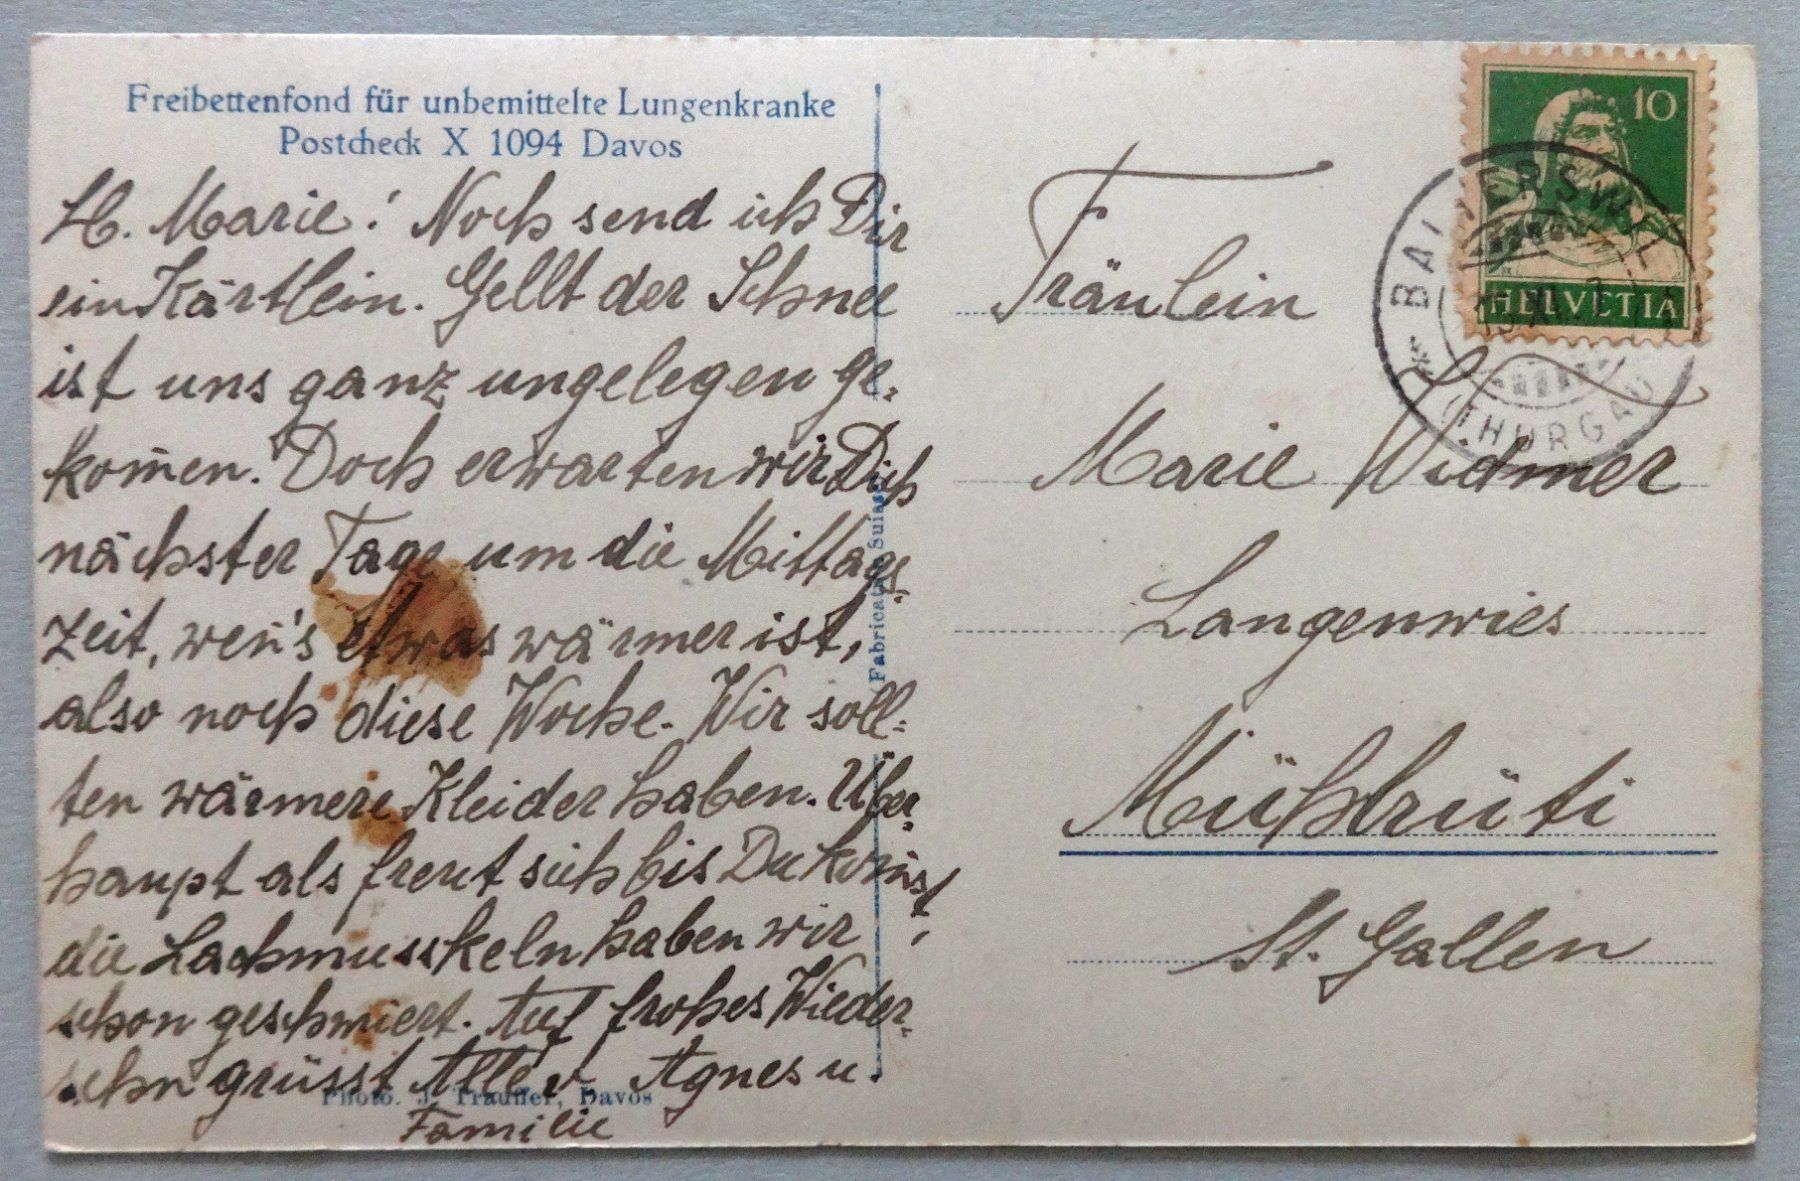 Freibettenfond für unbemittelte Lungenkranke
Postcheck X 1094 Davos
Lb. Marie! Noch send ich Dir
ein Kärtlein. Gellt der Schnee
ist uns ganz ungelegen ge-
kom̄en. Doch erwarten wir Dich
nächster Tage um die Mittags-
zeit, wen̄'s etwas wärmer ist,
also noch diese Woche. Wir soll-
ten wärmere Kleider haben. Über-
haupt als freut sich bis Du kom̄st,
die Lachmusskeln haben wir
schon geschmiert. Auf frohes Wieder-
sehn grüsst Alle v. Agnes u.
Familie
Photo. J. Trauffer, Davos
Fabrication Suisse
10
HELVETIA
BALTERSWIL
(THURGAU)
Fräulein
Marie Widmer
Langenwies
Mühlrüti
St. Gallen